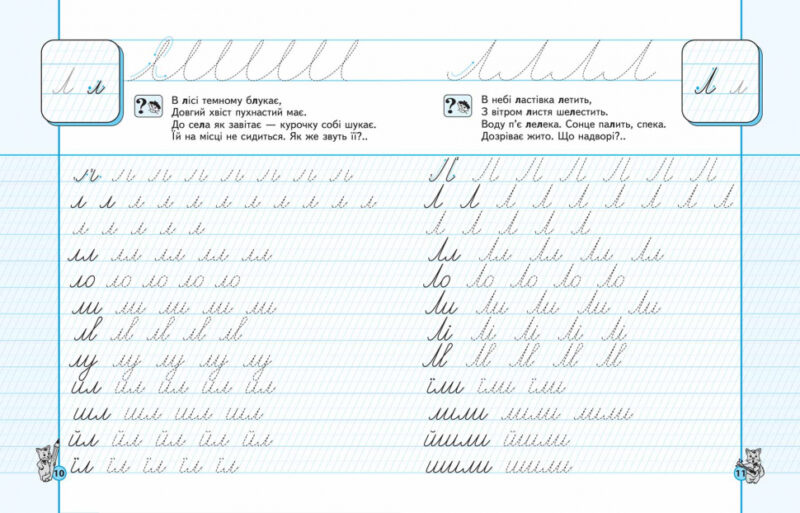 Л л
В лісі темному блукає,
Довгий хвіст пухнастий має.
До села як завітає — курочку собі шукає.
Їй на місці не сидиться. Як же звуть її?..
л л л л л л л л л л л
л л л л л
лл лл лл лл лл
ло ло ло ло ло
ли ли ли ли ли
лв лв лв лв лв
лу лу лу лу лу
ил ил ил ил ил
шл шл шл шл
йл йл йл йл йл
їл їл їл їл їл
10
Л л
Л Л Л Л
В небі ластівка летить,
З вітром листя шелестить.
Воду п'є лелека. Сонце палить, спека.
Дозріває жито. Що надворі?..
Л Л Л Л Л Л Л Л Л Л
Л Л Л Л Л
Лл Лл Лл Лл Лл
Ло Ло Ло Ло Ло
Ли Ли Ли Ли Ли
Лі Лі Лі Лі Лі
Лв Лв Лв Лв Лв
їли їли їли
лили лили лили
йшли йшли
шили шили
11